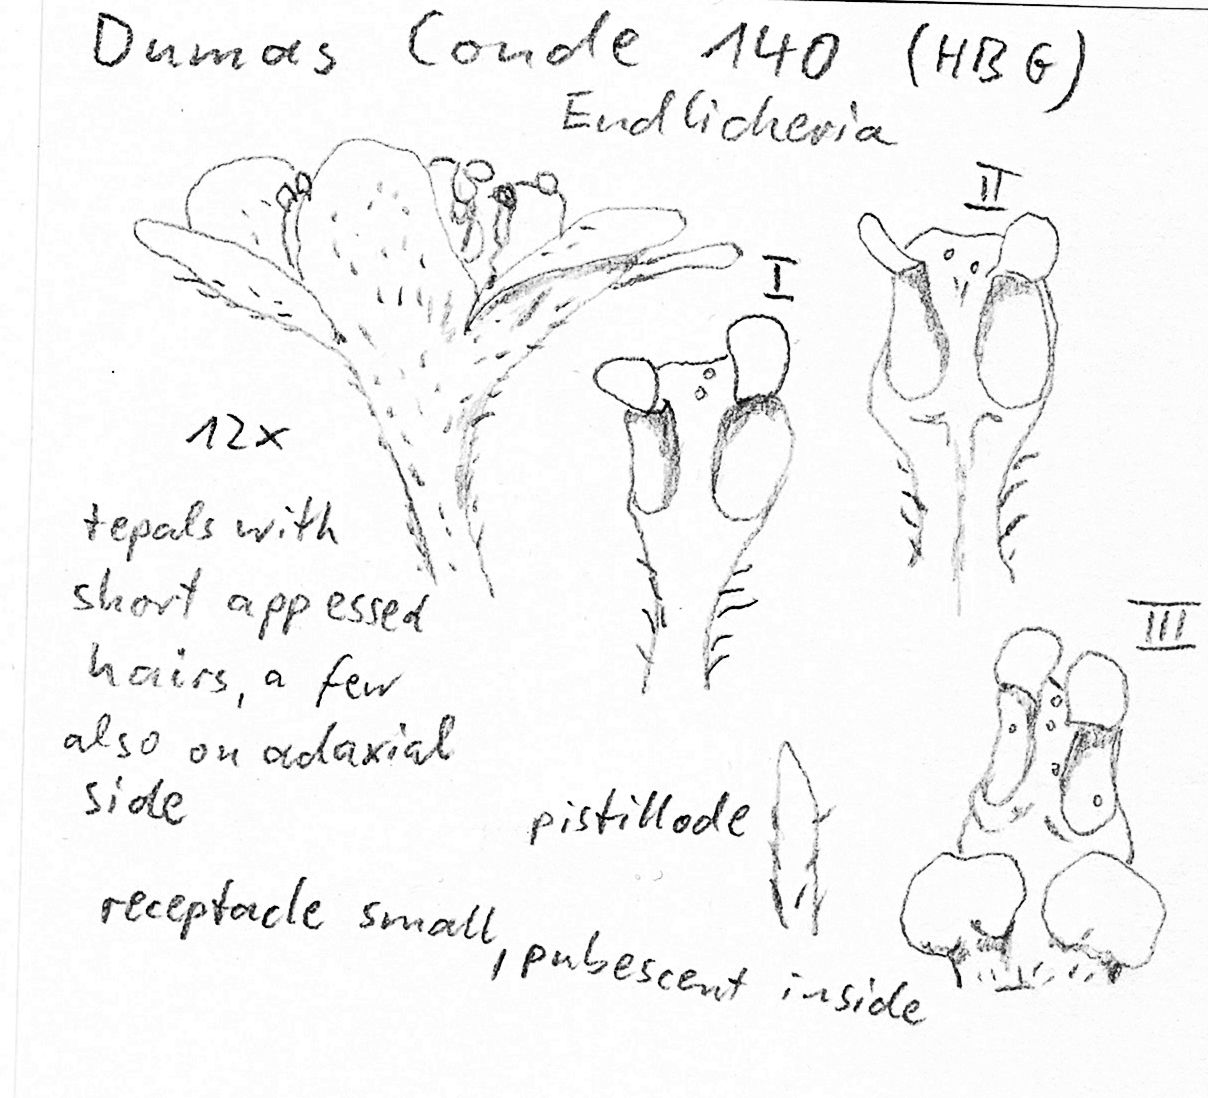 Dumas Conde 140 (HBG)
Endlicheria
II
I
12x
tepals with
short appessed
hairs, a few
also on adaxial
side
III
pistillode
receptacle small, pubescent inside